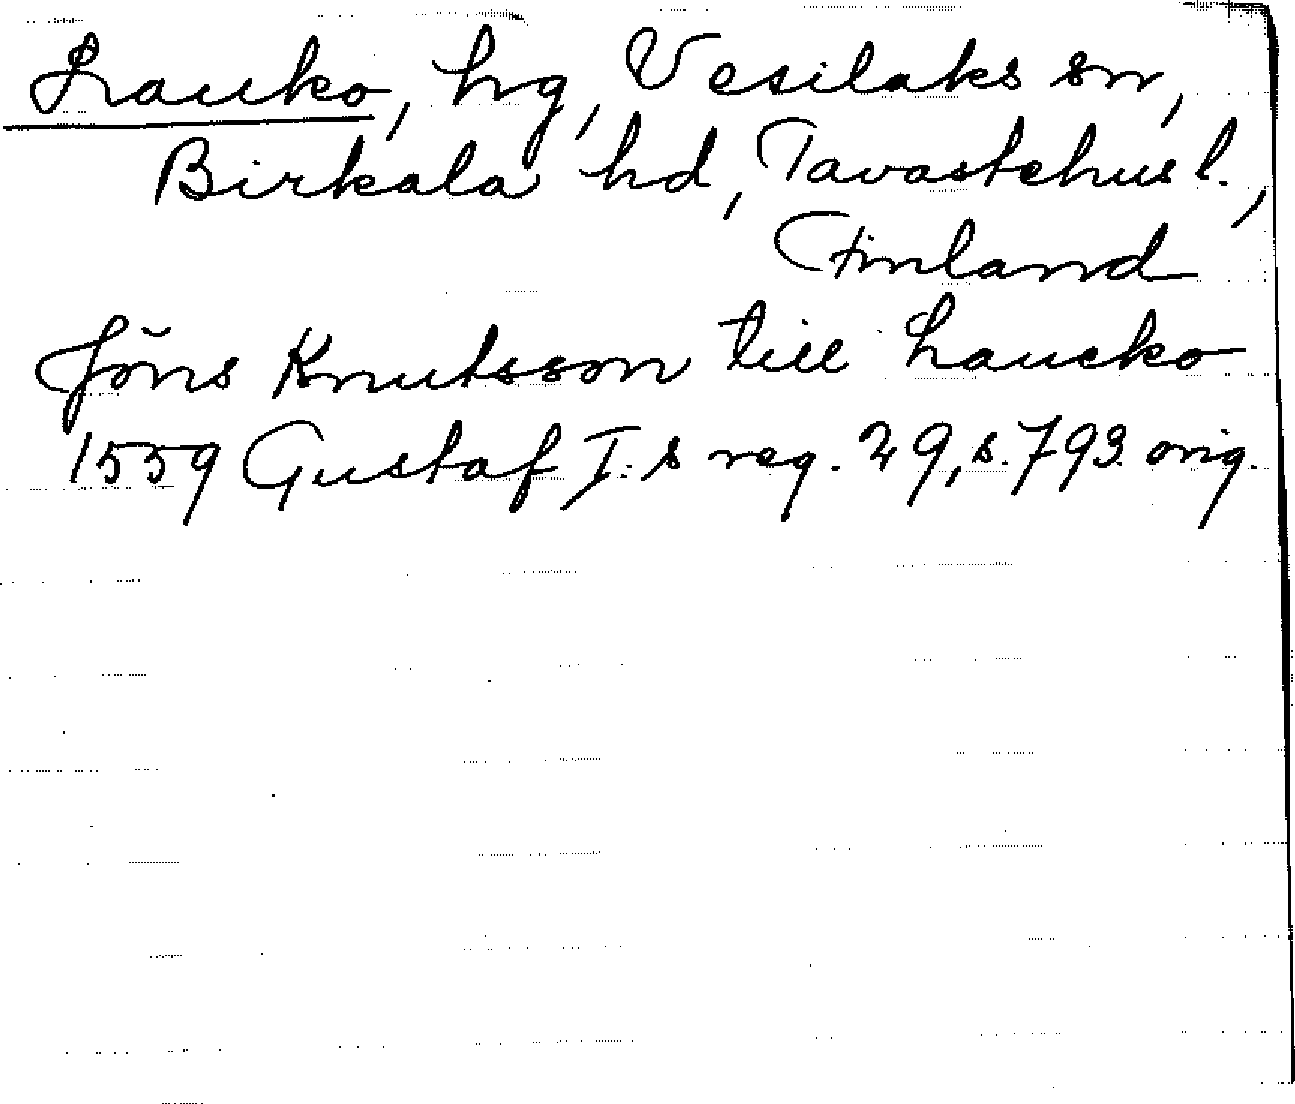 Lauko, hg, Vesilaks sn,
Birkala hd, Tavastehus l.,
Finland
Jöns Knutsson till Laucko
1559 Gustaf I:s reg. 29, s. 793. orig.